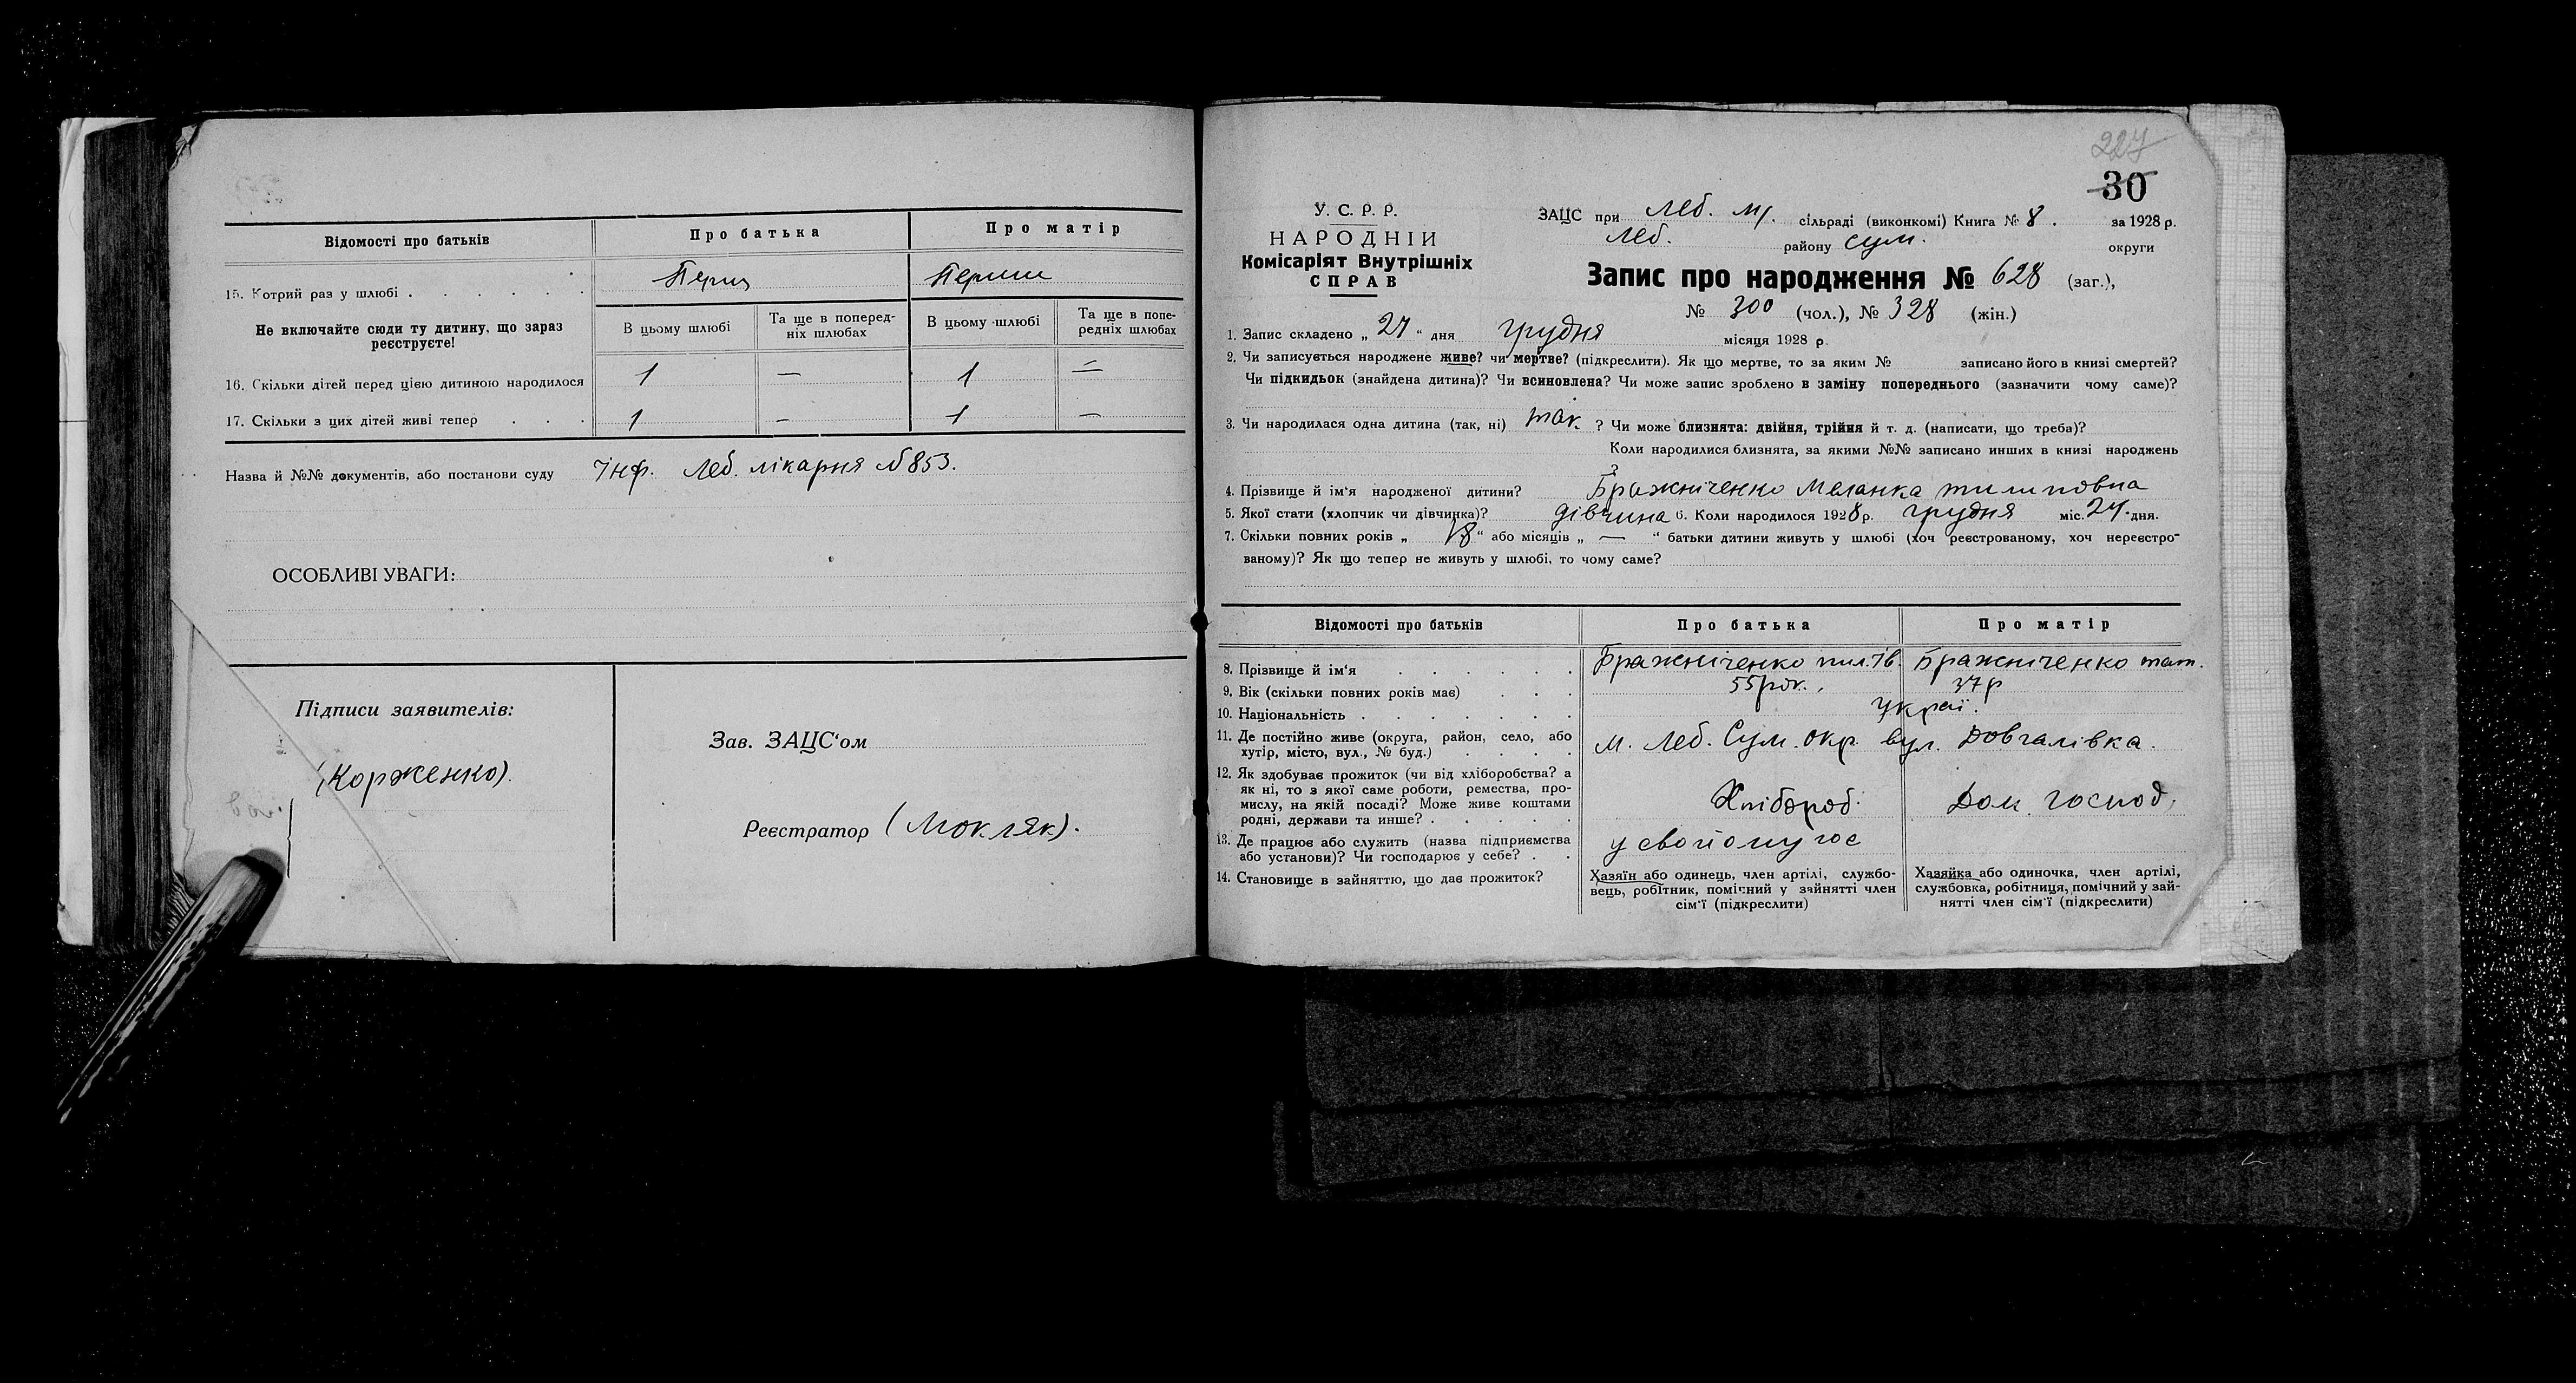 Відомості про батьків
Про батька
Про матір
15. Котрий раз у шлюбі . . . . . .
Перш
Перши
Не включайте сюди ту дитину, що зараз реєструєте!
В цьому шлюбі
Та ще в поперед-
ніх шлюбах
В цьому шлюбі
Та ще в попе-
редніх шлюбах
16. Скільки дітей перед цією дитиною народилося
1 — 1 —
17. Скільки з цих дітей живі тепер . . .
1 — 1 —
Назва й №№ документів, або постанови суду Інф. Леб. лікарня №853.
ОСОБЛИВІ УВАГИ:
Підписи заявителів:
(Корженко).
Зав. ЗАЦС'ом
Реєстратор (Мокляк).
227
30
У. С. Р. Р.
НАРОДНІЙ
Комісаріят Внутрішніх
СПРАВ
ЗАЦС при Леб. м. сільраді (виконкомі) Книга № 8. за 1928 р.
Леб. району Сум. округи
Запис про народження № 628 (заг.),
№ 300 (чол.), № 328 (жін.)
1. Запис складено „ 27 “ дня грудня місяця 1928 р.
2. Чи записується народжене живе? чи мертве? (підкреслити). Як що мертве, то за яким № записано його в книзі смертей?
Чи підкидьок (знайдена дитина)? Чи всиновлена? Чи може запис зроблено в заміну попереднього (зазначити чому саме)?
3. Чи народилася одна дитина (так, ні) так ? Чи може близнята: двійня, трійня й т. д. (написати, що треба)?
Коли народилися близнята, за якими №№ записано инших в книзі народжень
?
4. Прізвище й ім'я народженої дитини? Бражніченко Меланка пилиповна
5. Якої стати (хлопчик чи дівчинка)? дівчина 6. Коли народилося 1928 р. грудня міс. 24 дня.
7. Скільки повних років „ 18 “ або місяців „ — “ батьки дитини живуть у шлюбі (хоч реєстрованому, хоч нереєстро-
ваному)? Як що тепер не живуть у шлюбі, то чому саме?
Відомості про батьків
Про батька
Про матір
8. Прізвище й ім'я . . . . . .
Бражніченко
Бражніченко
9. Вік (скільки повних років має) . . .
55 рок.
37 р
10. Національність . . . . . . .
Украї.
11. Де постійно живе (округа, район, село, або
хутір, місто, вул., № буд.) . . . .
м. Леб. Сум. окр. вул. Довгалівка.
12. Як здобуває прожиток (чи від хліборобства? а
як ні, то з якої саме роботи, ремества, про-
мислу, на якій посаді? Може живе коштами
родні, держави та инше? . . . . .
Хлібороб.
Дом. господ.
13. Де працює або служить (назва підприємства
або установи)? Чи господарює у себе? . .
у своїому гос
14. Становище в зайняттю, що дає прожиток?
Хазяїн або одинець, член артілі, службо-
вець, робітник, помічний у зайнятті член
сім'ї (підкреслити)
Хазяйка або одиночка, член артілі,
службовка, робітниця, помічний у зай-
нятті член сім'ї (підкреслити)